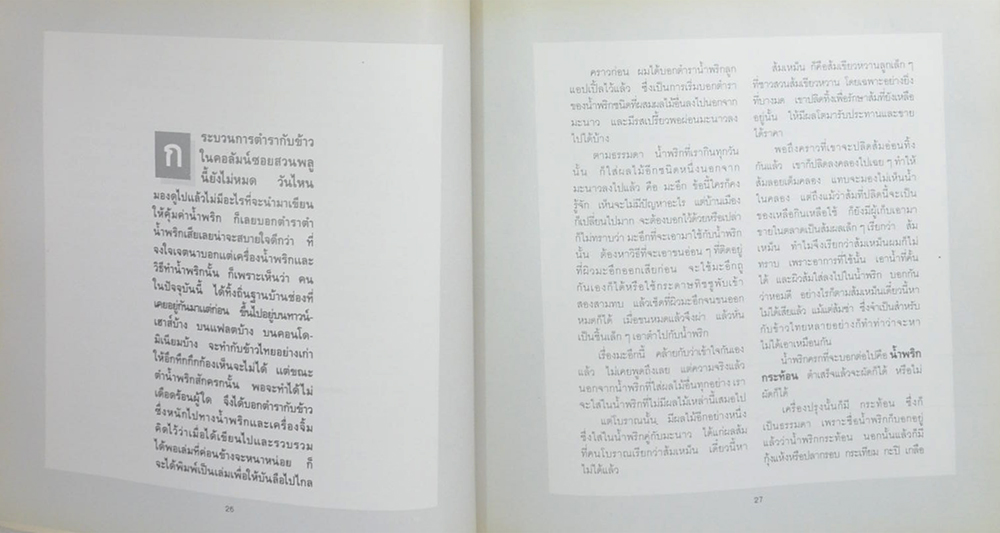 กระบวนการตำรากับข้าว
ในคอลัมน์ซอยสวนพลู
นี้ยังไม่หมด วันไหน
มองดูไปแล้วไม่มีอะไรที่จะนำมาเขียน
ให้คุ้มค่าน้ำพริก ก็เลยบอกตำราตำ
น้ำพริกเสียเลยน่าจะสบายใจดีกว่า ที่
จงใจเจตนาบอกแต่เครื่องน้ำพริกและ
วิธีทำน้ำพริกนั้น ก็เพราะเห็นว่า คน
ในปัจจุบันนี้ ได้ทิ้งถิ่นฐานบ้านช่องที่
เคยอยู่กันมาแต่ก่อน ขึ้นไปอยู่บนทาวน์-
เฮาส์บ้าง บนแฟลตบ้าง บนคอนโด-
มิเนียมบ้าง จะทำกับข้าวไทยอย่างเก่า
ให้อึกทึกกึกก้องเห็นจะไม่ได้ แต่ขณะ
ตำน้ำพริกสักครกนั้น พอจะทำได้ไม่
เดือดร้อนผู้ใด จึงได้บอกตำรากับข้าว
ซึ่งหนักไปทางน้ำพริกและเครื่องจิ้ม
คิดไว้ว่าเมื่อได้เขียนไปและรวบรวม
ได้พอเล่มที่ค่อนข้างจะหนาหน่อย ก็
จะได้พิมพ์เป็นเล่มเพื่อให้บันลือไปไกล
26
คราวก่อน ผมได้บอกตำราน้ำพริกลูก
แอปเปิ้ลไว้แล้ว ซึ่งเป็นการเริ่มบอกตำรา
ของน้ำพริกชนิดที่ผสมผลไม้อื่นลงไปนอกจาก
มะนาว และมีรสเปรี้ยวพอผ่อนมะนาวลง
ไปได้บ้าง
ตามธรรมดา น้ำพริกที่เรากินทุกวัน
นั้น ก็ใส่ผลไม้อีกชนิดหนึ่งนอกจาก
มะนาวลงไปแล้ว คือ มะอึก ข้อนี้ใครก็คง
รู้จัก เห็นจะไม่มีปัญหาอะไร แต่บ้านเมือง
ก็เปลี่ยนไปมาก จะต้องบอกไว้ด้วยหรือเปล่า
ก็ไม่ทราบว่า มะอึกที่จะเอามาใช้กับน้ำพริก
นั้น ต้องหาวิธีที่จะเอาขนอ่อน ๆ ที่ติดอยู่
ที่ผิวมะอึกออกเสียก่อน จะใช้มะอึกถู
กันเองก็ได้หรือใช้กระดาษทิชชูพับเข้า
สองสามทบ แล้วเช็ดที่ผิวมะอึกจนขนออก
หมดก็ได้ เมื่อขนหมดแล้วจึงผ่า แล้วหั่น
เป็นชิ้นเล็ก ๆ เอาตำไปกับน้ำพริก
เรื่องมะอึกนี้ คล้ายกับว่าเข้าใจกันเอง
แล้ว ไม่เคยพูดถึงเลย แต่ความจริงแล้ว
นอกจากน้ำพริกที่ใส่ผลไม้อื่นทุกอย่าง เรา
จะใส่ในน้ำพริกที่ไม่มีผลไม้เหล่านี้เสมอไป
แต่โบราณนั้น มีผลไม้อีกอย่างหนึ่ง
ซึ่งใส่ในน้ำพริกคู่กับมะนาว ได้แก่ผลส้ม
ที่คนโบราณเรียกว่าส้มเหม็น เดี๋ยวนี้หา
ไม่ได้แล้ว
ส้มเหม็น ก็คือส้มเขียวหวานลูกเล็ก ๆ
ที่ชาวสวนส้มเขียวหวาน โดยเฉพาะอย่างยิ่ง
ที่บางมด เขาปลิดทิ้งเพื่อรักษาส้มที่ยังเหลือ
อยู่นั้น ให้มีผลโตมารับประทานและขาย
ได้ราคา
พอถึงคราวที่เขาจะปลิดส้มอ่อนทิ้ง
กันแล้ว เขาก็ปลิดลงคลองไปเฉย ๆ ทำให้
ส้มลอยเต็มคลอง แทบจะมองไม่เห็นน้ำ
ในคลอง แต่ถึงแม้ว่าส้มที่ปลิดนี้จะเป็น
ของเหลือกินเหลือใช้ ก็ยังมีผู้เก็บเอามา
ขายในตลาดเป็นส้มผลเล็ก ๆ เรียกว่า ส้ม
เหม็น ทำไมจึงเรียกว่าส้มเหม็นผมก็ไม่
ทราบ เพราะอาการที่ใช้นั้น เอาน้ำที่คั้น
ได้ และผิวส้มใส่ลงไปในน้ำพริก บอกกัน
ว่าหอมดี อย่างไรก็ตามส้มเหม็นเดี๋ยวนี้หา
ไม่ได้เสียแล้ว แม้แต่ส้มซ่า ซึ่งจำเป็นสำหรับ
กับข้าวไทยหลายอย่างก็ทำท่าว่าจะหา
ไม่ได้เอาเหมือนกัน
น้ำพริกครกที่จะบอกต่อไปคือ น้ำพริก
กระท้อน ตำเสร็จแล้วจะผัดก็ได้ หรือไม่
ผัดก็ได้
เครื่องปรุงนั้นก็มี กระท้อน ซึ่งก็
เป็นธรรมดา เพราะชื่อน้ำพริกก็บอกอยู่
แล้วว่าน้ำพริกกระท้อน นอกนั้นแล้วก็มี
กุ้งแห้งหรือปลากรอบ กระเทียม กะปิ เกลือ
27